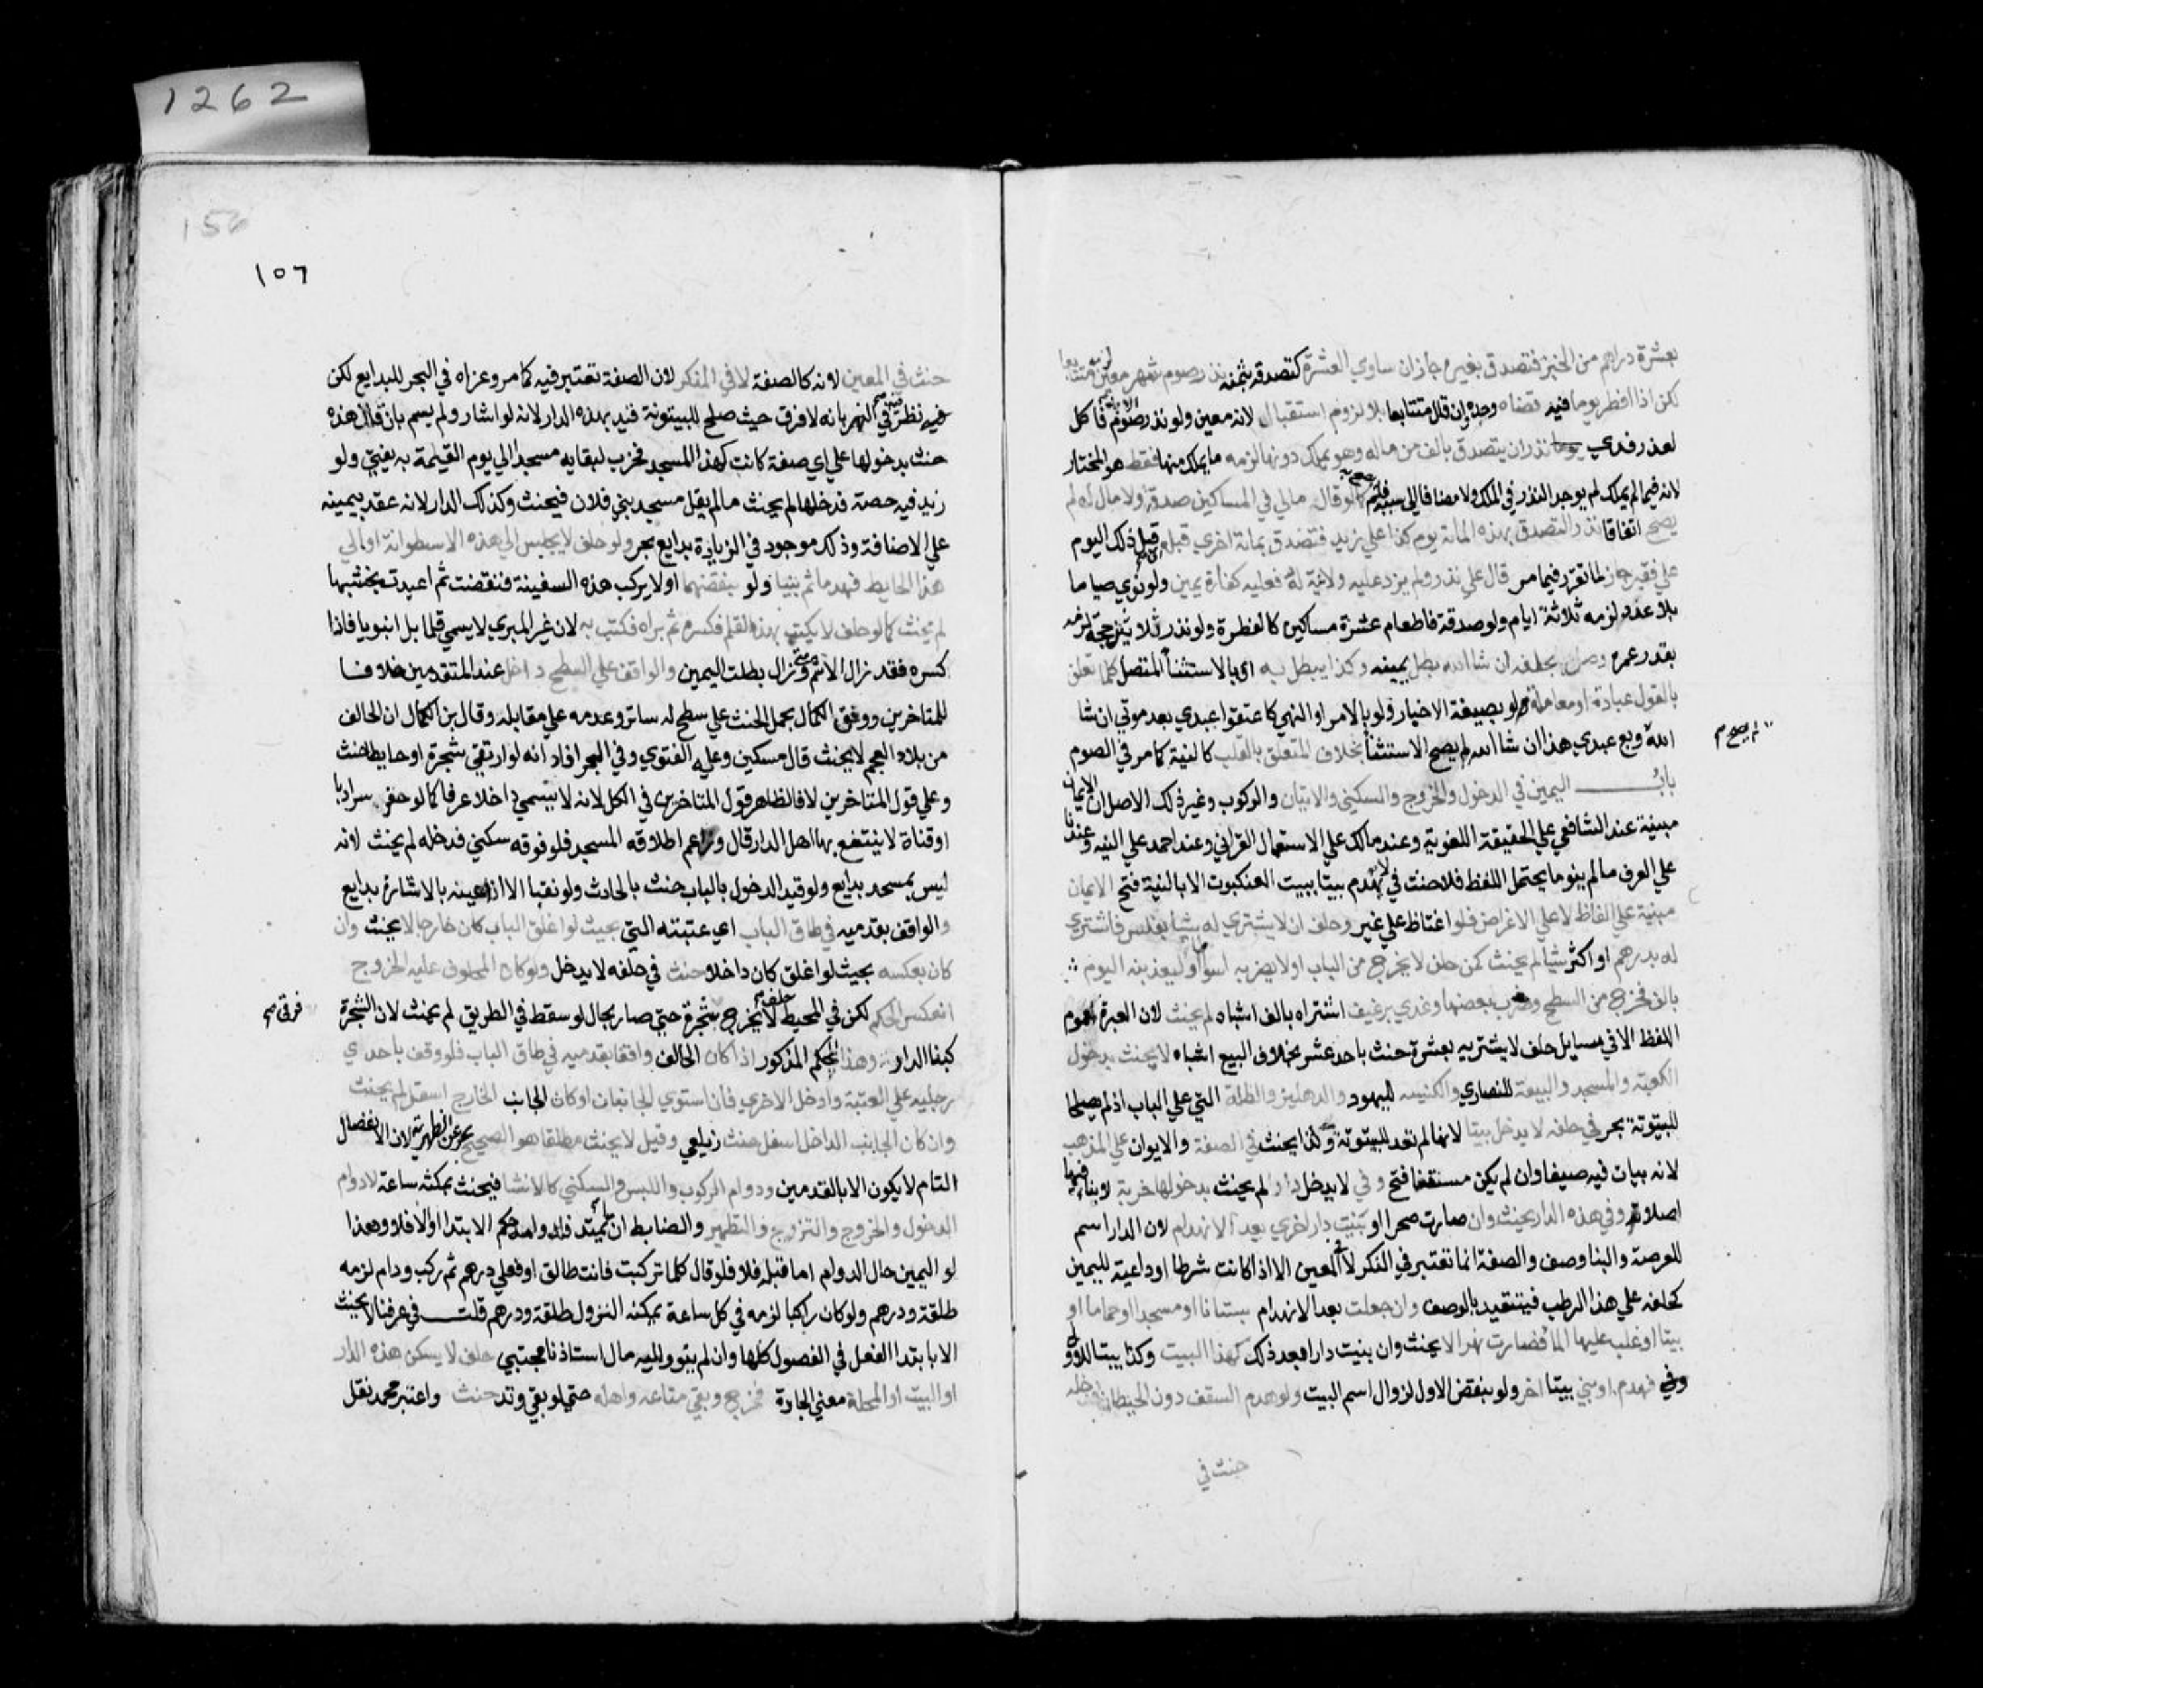 بعشرة دراهم من الخبز فتصدق بغيره جاز ان ساوي العشرة كتصدقه بثمنه نذر صوم شهر معين لزمه متتابعا
لكن اذا افطر يوما فيه قضاه وحده وان قال متتابعا بلا لزوم استقبال لانه معين ولو نذر صوم الابد فاكل
لعذر فدي نذر ان يتصدق بالف من ماله وهو يملك دونها لزمه ما يملك منها فقط هو المختار
لانه فيما لم يملك لم يوجد النذر في الملك ولا مضافا الي سببه فلم يصح كما لو قال مالي في المساكين صدقة ولا مال له لم
يصح اتفاقا نذر التصدق بهذه المائة يوم كذا علي زيد فتصدق بمائة اخري قبله قبل ذلك اليوم
علي فقير جاز لما تقرر فيما مر قال علي نذر ولم يزد عليه ولا نية له فعليه كفارة يمين ولو نوي صياما
بلا عدد لزمه ثلاثة ايام ولو صدقة فاطعام عشرة مساكين كالفطرة ولو نذر ثلاثين حجة لزمه
بقدر عمره وصل بحلفه ان شا الله بطل يمينه وكذا يبطل به اي بالاستثنا المتصل كلما تعلق
بالقول عبادة او معاملة ولو بصيغة الاخبار ولو بالامر او النهي كاعتقوا عبدي بعد موتي ان شا
الله وبع عبدي هذا ان شا الله لم يصح الاستثنا بخلاف المتعلق بالقلب كالنية كما مر في الصوم
لم يصح م
باب اليمين في الدخول والخروج والسكني والاتيان والركوب وغير ذلك الاصل ان الايمان
مبنية عند الشافعي علي الحقيقة اللغوية وعند مالك علي الاستعمال القراني وعند احمد علي النية وعندنا
علي العرف ما لم ينو ما يحتمل اللفظ فلا حنث في لا يهدم بيتا ببيت العنكبوت الا بالنية فتح الايمان
مبنية علي الفاظ لا علي الاغراض فلو اغتاظ علي غيره وحلف ان لا يشتري له شيا بفلس فاشتري
له بدرهم او اكثر شيا لم يحنث كمن حلف لا يخرج من الباب او لا يضربه اسواطا او ليغدينه اليوم
بالف فخرج من السطح وضرب بعضها وغدي برغيف اشتراه بالف اشباه لم يحنث لان العبرة لعموم
اللفظ الا في مسايل حلف لا يشتريه بعشرة حنث باحد عشر بخلاف البيع اشباه لا يحنث بدخول
الكعبة والمسجد والبيعة للنصاري والكنيسة لليهود والدهليز والظلة التي علي الباب اذا لم يصلحا
للبيتوتة بحر في حلفه لا يدخل بيتا لانها لم تعد للبيتوتة ولذا يحنث في الصفة والايوان علي المذهب
لانه يبات فيه صيفا وان لم يكن مسقفا فتح وفي لا يدخل دارا لم يحنث بدخولها خربة لا بناء فيها
اصلا وفي هذه الدار يحنث وان صارت صحرا او بنيت دار اخري بعد الانهدام لان الدار اسم
للعرصة والبنا وصف والصفة انما تعتبر في المنكر لا في المعين الا اذا كانت شرطا او داعية لليمين
كحلفه علي هذا الرطب فيتقيد بالوصف وان جعلت بعد الانهدام بستانا او مسجدا او حماما او
بيتا او غلب عليها الما فصارت نهرا لا يحنث وان بنيت دارا بعد ذلك كهذا البيت وكذا بيتا
فهدم او بني بيتا اخر ولو بنقض الاول لزوال اسم البيت ولو هدم السقف دون الحيطان
حنث في
1262
156
١٥٦
حنث في المعين لانه كالصفة لا في المنكر لان الصفة تعتبر فيه كما مر وعزاه في البحر للبدايع لكن
فيه نظر في النهر بانه لا فرق حيث صلح للبيتوتة قيد بهذه الدار لانه لو اشار ولم يسم بان قال هذه
حنث بدخولها علي اي صفة كانت كهذا المسجد فخرب لبقايه مسجدا الي يوم القيمة به يفتي ولو
زيد فيه حصة فدخلها لم يحنث ما لم يقل مسجد بني فلان فيحنث وكذلك الدار لانه عقد يمينه
علي الاضافة وذلك موجود في الزيادة بدايع بحر ولو حلف لا يجلس الي هذه الاسطوانة او الي
هذا الحايط فهدما ثم بنيا ولو بنقضهما او لا يركب هذه السفينة فنقضت ثم اعيدت بخشبها
لم يحنث كما لو حلف لا يكتب بهذا القلم فكسره ثم براه فكتب به لان غير المبري لا يسمي قلما بل انبوبا فاذا
كسره فقد زال الاسم ومتي زال بطلت اليمين والواقف علي السطح داخل عند المتقدمين خلافا
للمتاخرين ووفق الكمال بحمل الحنث علي سطح له ساتر وعدمه علي مقابله وقال بن الكمال ان الحالف
من بلاد العجم لا يحنث قال مسكين وعليه الفتوي وفي البحر افاد انه لو ارتقي شجرة او حايطا حنث
وعلي قول المتاخرين لا فالظاهر قول المتاخرين في الكل لانه لا يسمي داخلا عرفا كما لو حفر سردابا
او قناة لا ينتفع بها اهل الدار قال وزاعم اطلاقه المسجد فلو فوقه سكني فدخله لم يحنث لانه
ليس بمسجد بدايع ولو قيد الدخول بالباب حنث بالحادث ولو نقبا الا اذا عينه بالاشارة بدايع
والواقف بقدميه في طاق الباب اي عتبته التي بحيث لو اغلق الباب كان خارجا لا يحنث وان
كان بعكسه بحيث لو اغلق كان داخلا حنث في حلفه لا يدخل ولو كان المحلوف عليه الخروج
انعكس الحكم لكن في المحيط حلف لا يخرج شجرة حتي صار بحال لو سقط في الطريق لم يحنث لان الشجرة
كبنا الدار وهذا الحكم المذكور اذا كان الحالف واقفا بقدميه في طاق الباب فلو وقف باحدي
رجليه علي العتبة وادخل الاخري فان استوي الجانبان او كان الجانب الخارج اسفل لم يحنث
وان كان الجانب الداخل اسفل حنث زيلعي وقيل لا يحنث مطلقا هو الصحيح بحر عن الظهيرية لان الانفصال
التام لا يكون الا بالقدمين ودوام الركوب واللبس والسكني كالانشا فيحنث بمكثه ساعة لا دوام
الدخول والخروج والتزوج والتطهير والضابط ان ما يمتد فلدوامه حكم الابتدا والا فلا وهذا
لو اليمين حال الدوام اما قبله فلا فلو قال كلما ركبت فانت طالق او فعلي درهم ثم ركب ودام لزمه
طلقة ودرهم ولو كان راكبا لزمه في كل ساعة يمكنه النزول طلقة ودرهم قلت في عرفنا لا يحنث
الا بابتدا الفعل في الفصول كلها وان لم ينو واليه مال استاذنا مجتبي حلف لا يسكن هذه الدار
او البيت او المحلة معني الحارة فخرج وبقي متاعه واهله حتي لو بقي وتد حنث واعتبر محمد نقل